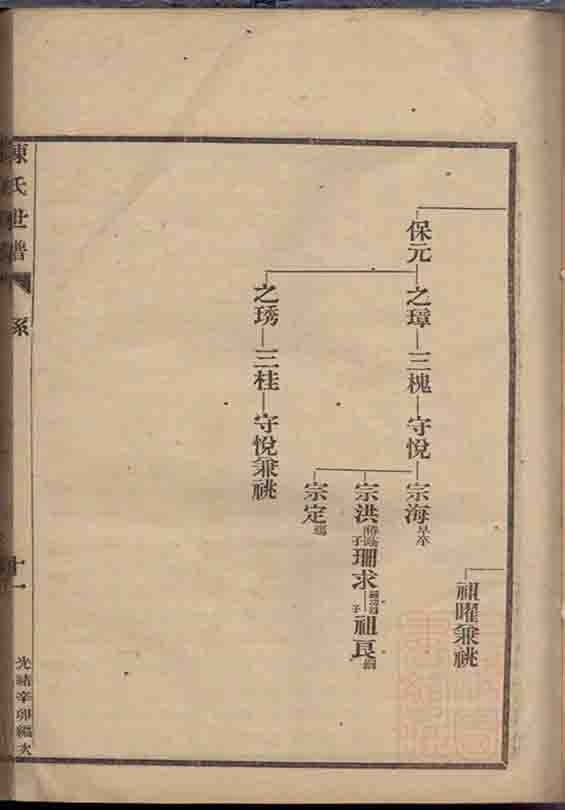 保元
之璋
三槐
守悅
宗海早卒
祖曜兼祧
之琇
三桂
守悅兼祧
宗洪
子
珊求
子
祖良
宗定
陳氏世譜
系
十一
光緒辛卯編次